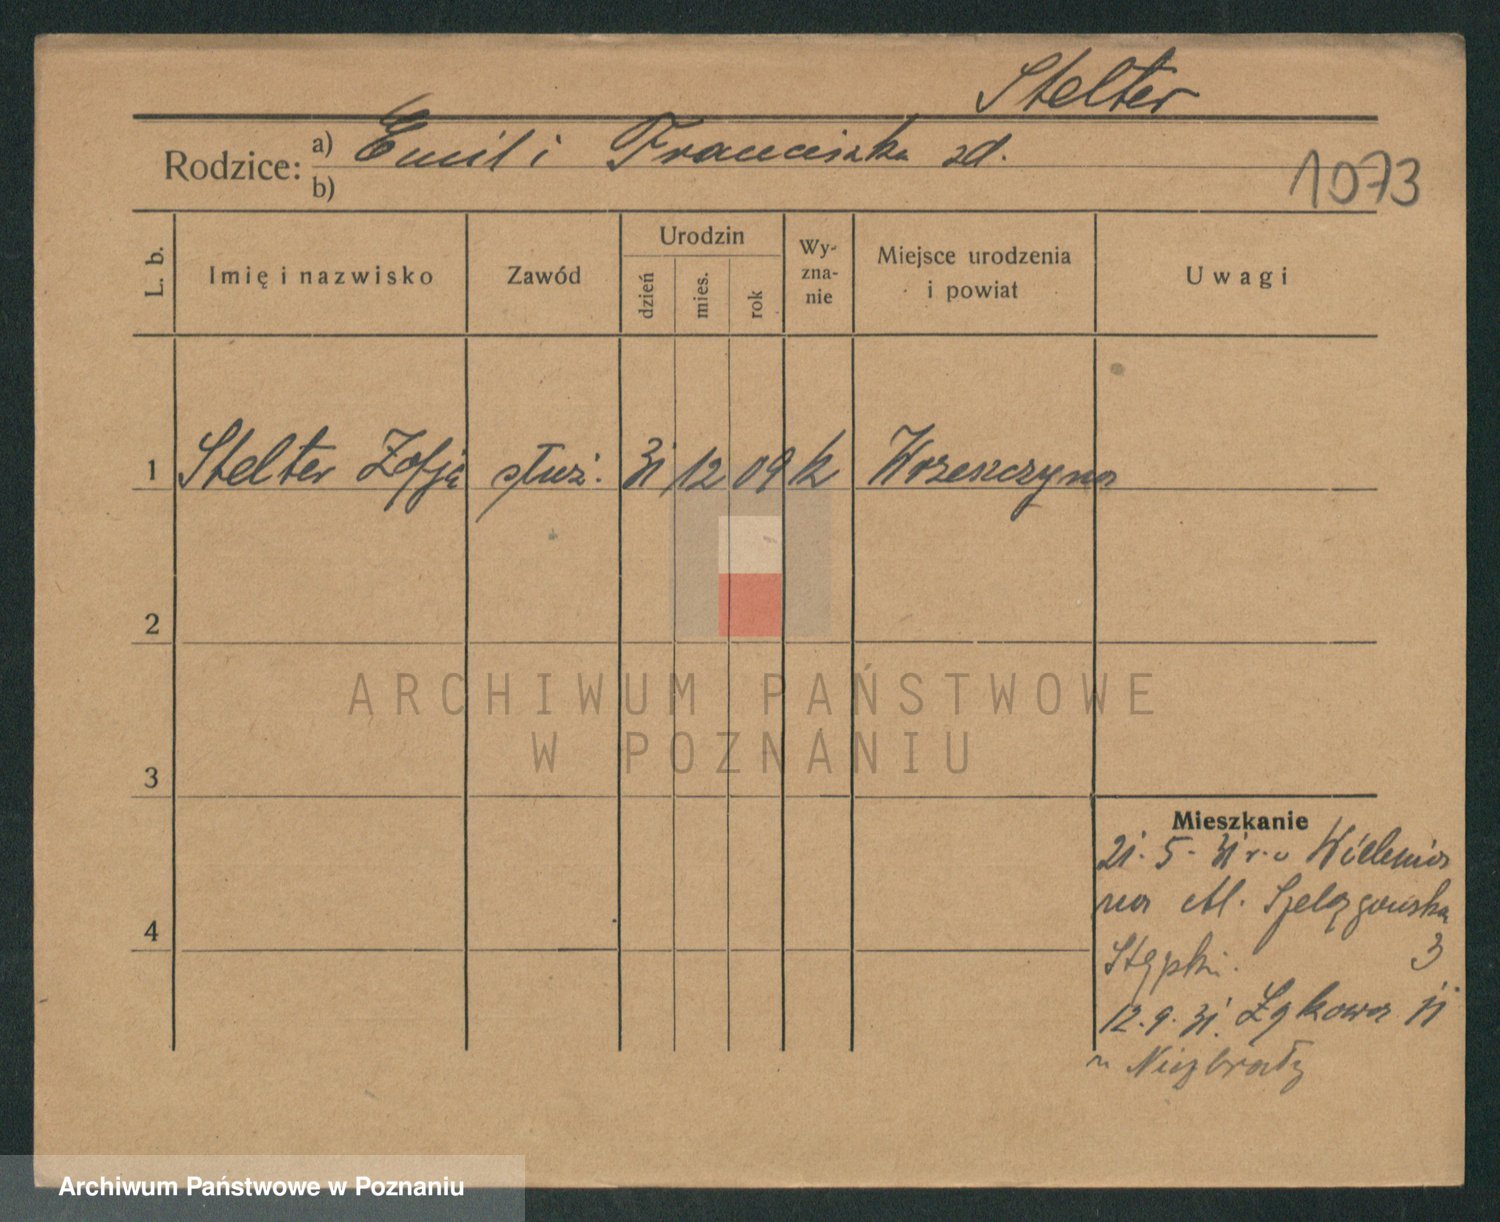 Stelter
Rodzice: a) Emil i Franciszka zd.
b)
1073
L. b.
Imię i nazwisko
Zawód
Urodzin
dzień
mies.
rok
Wy-
zna-
nie
Miejsce urodzenia
i powiat
Uwagi
1 Stelter Zofja służ. 31 12 09 k Wrzeszczyna
2
ARCHIWUM PAŃSTWOWE
W POZNANIU
3
Mieszkanie
21. 5. 31 r. Szelągowska
3
4
12. 9. 31. Łąkowa 11
u
Archiwum Państwowe w Poznaniu